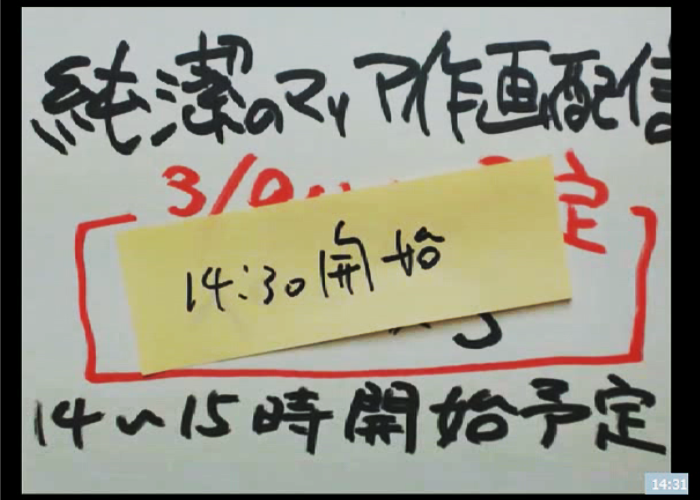 純潔のマリア作画配信
3/9
定
14:30開始
14〜15時開始予定
14:31